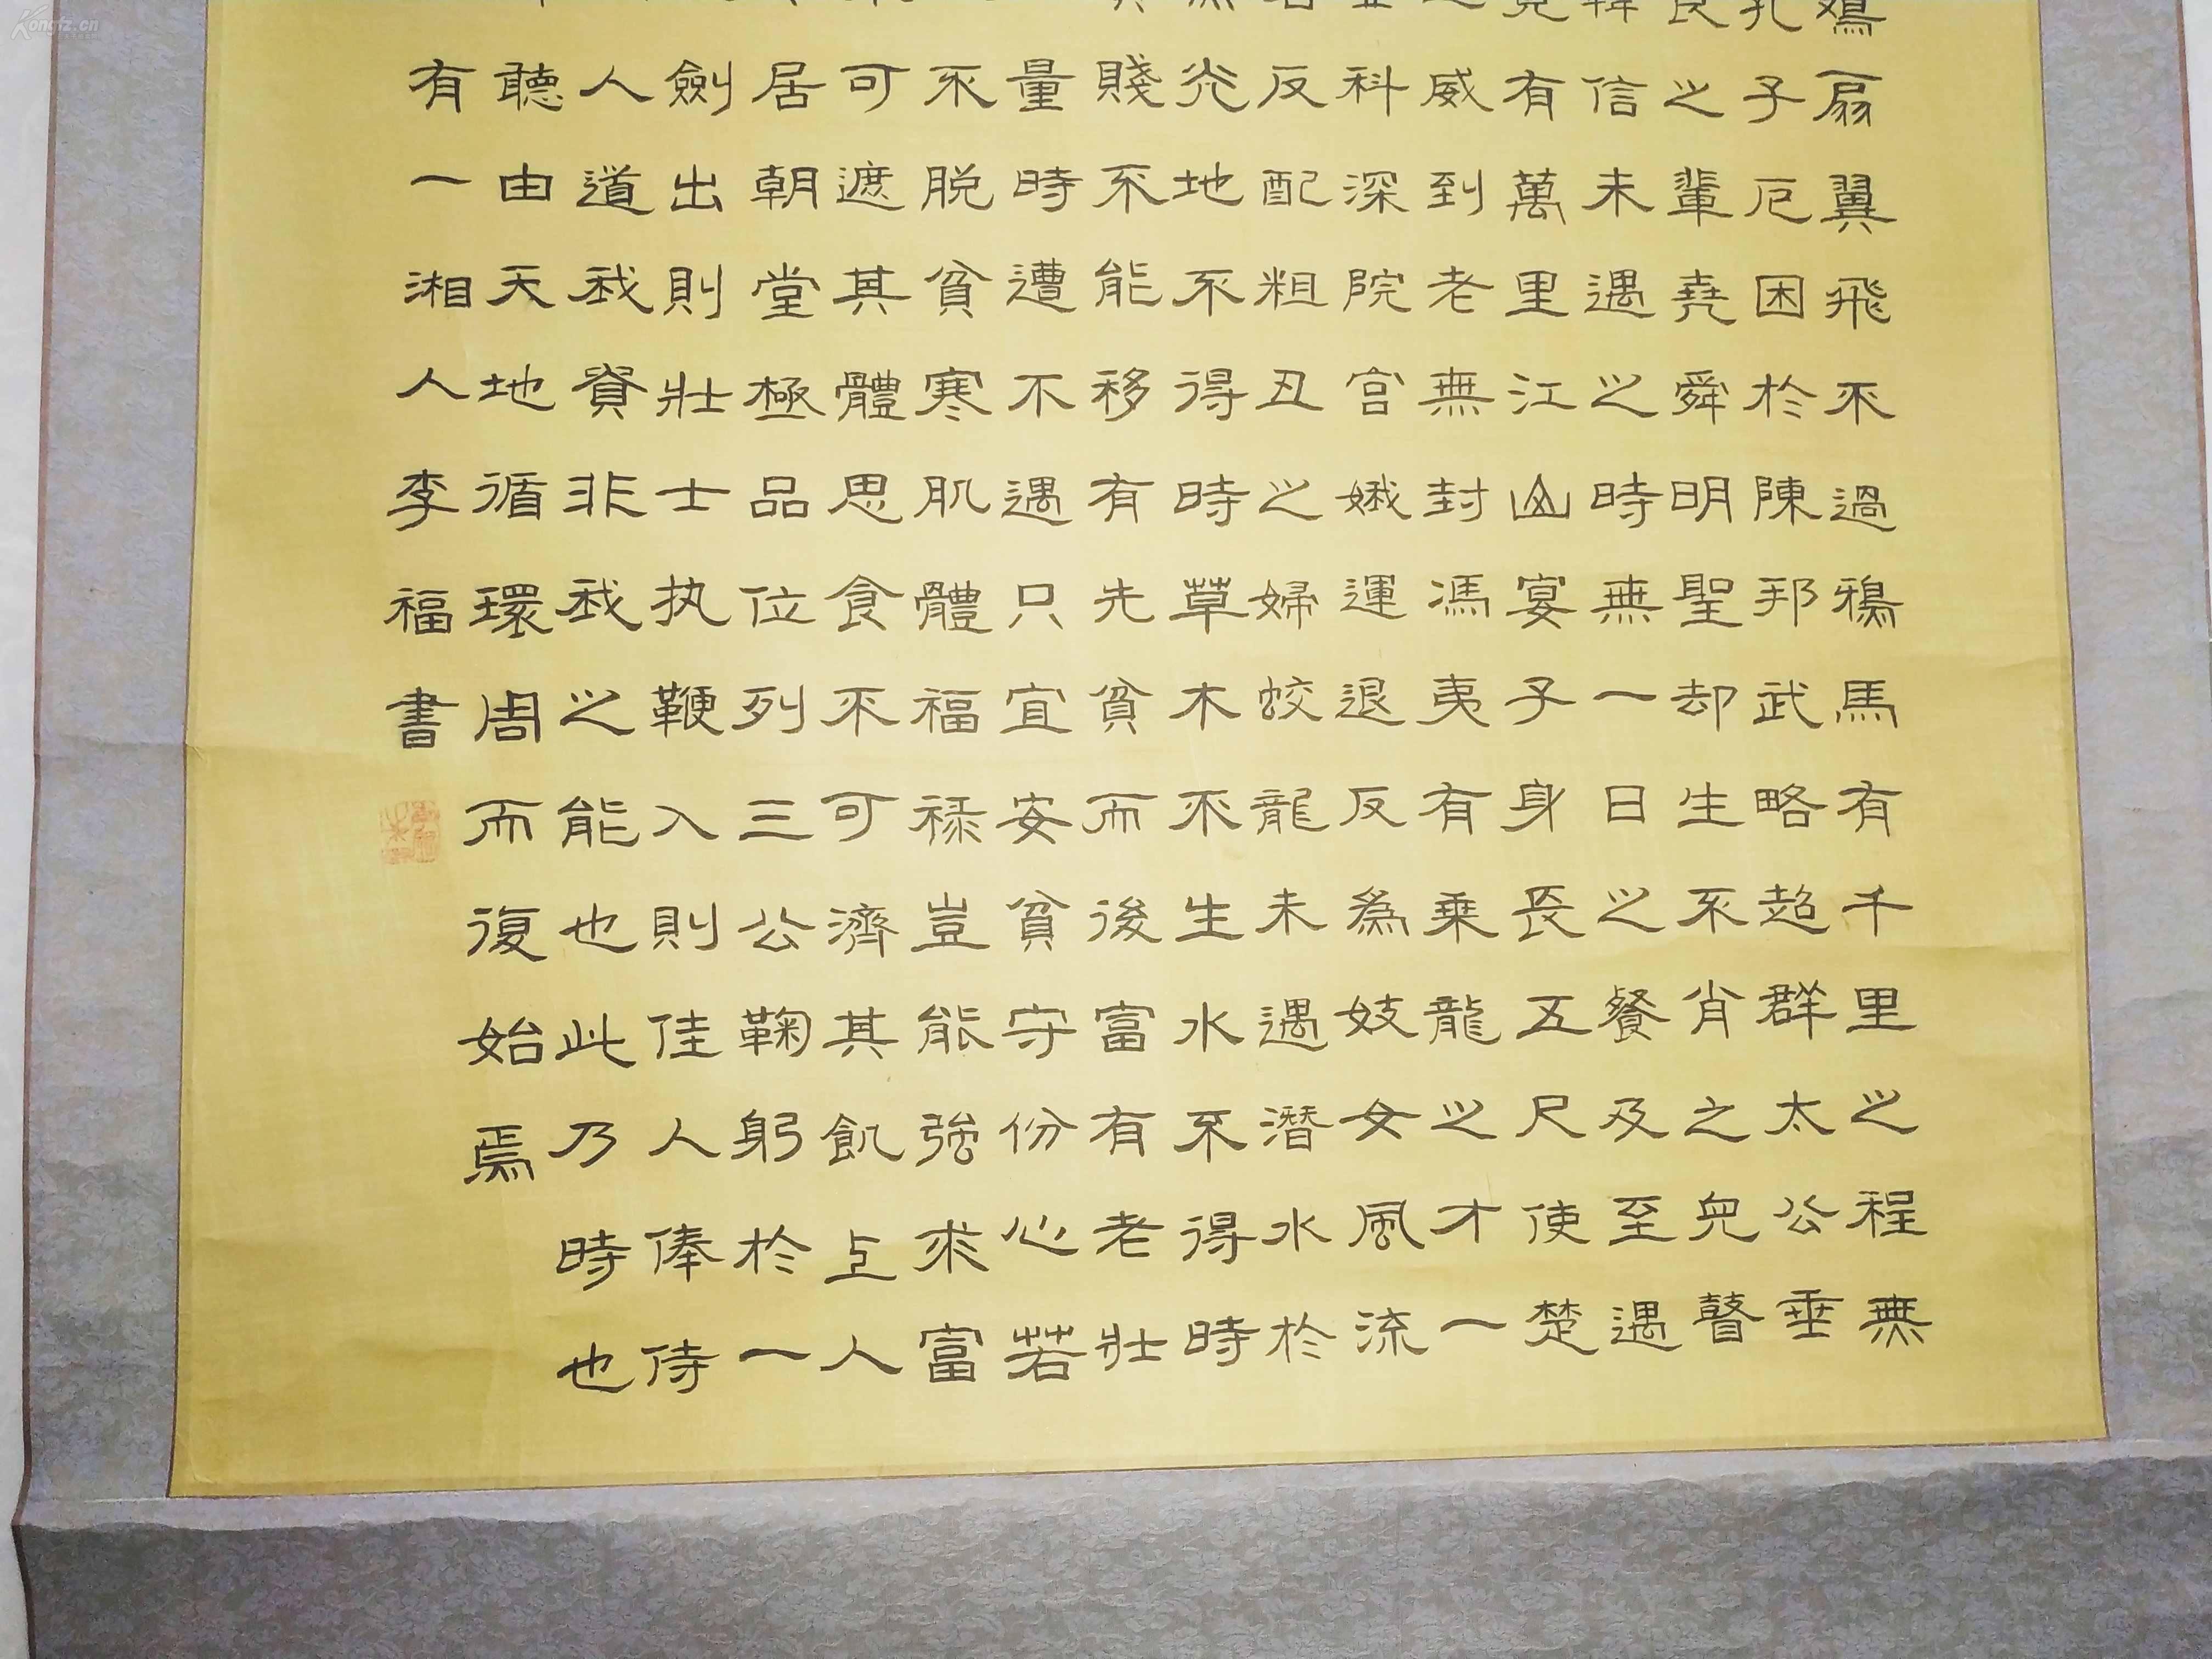 鷄扇翼飛不過鴉馬有千里之程無
孔子厄困於陳邦武略超群太公垂
良之輩堯舜明聖却生不肖之兒瞽
韓信未遇之時無一日之餐及至遇
有萬里江山宴子身長五尺使楚
威到老無封馮夷有乘龍之才一
科深院宫娥運退反為妓女風流
反配粗丑之婦蛟龍未遇潛水於
光地不得時草木不生水不得時
賤不能移有先貧而後富有老壯
量時遭不遇只宜安貧守份心若
不脱貧寒肌體福禄豈能強求富
可遮其體思食不可濟其飢上人
居朝堂極品位列三公鞠躬於一
劍出則壯士执鞭入則佳人俸侍
人道我貧非我之能也此乃時也
聽由天地循環周而復始焉
有一湘人李福書